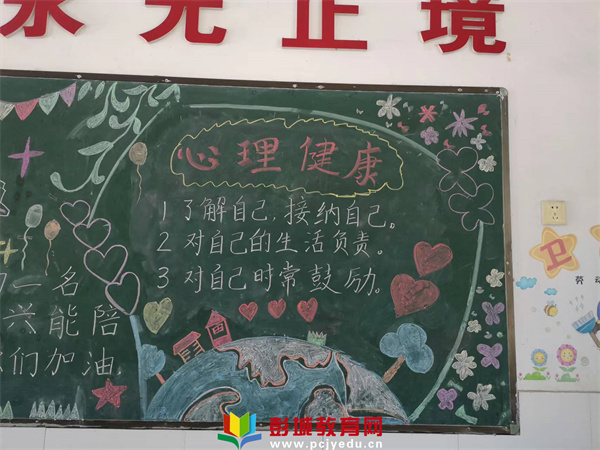 永无止境
心理健康
1 了解自己，接纳自己。
2 对自己的生活负责。
3 对自己时常鼓励。
一名
兴能陪
们加油。
卫
劳动
彭城教育网
www.pcjyedu.cn